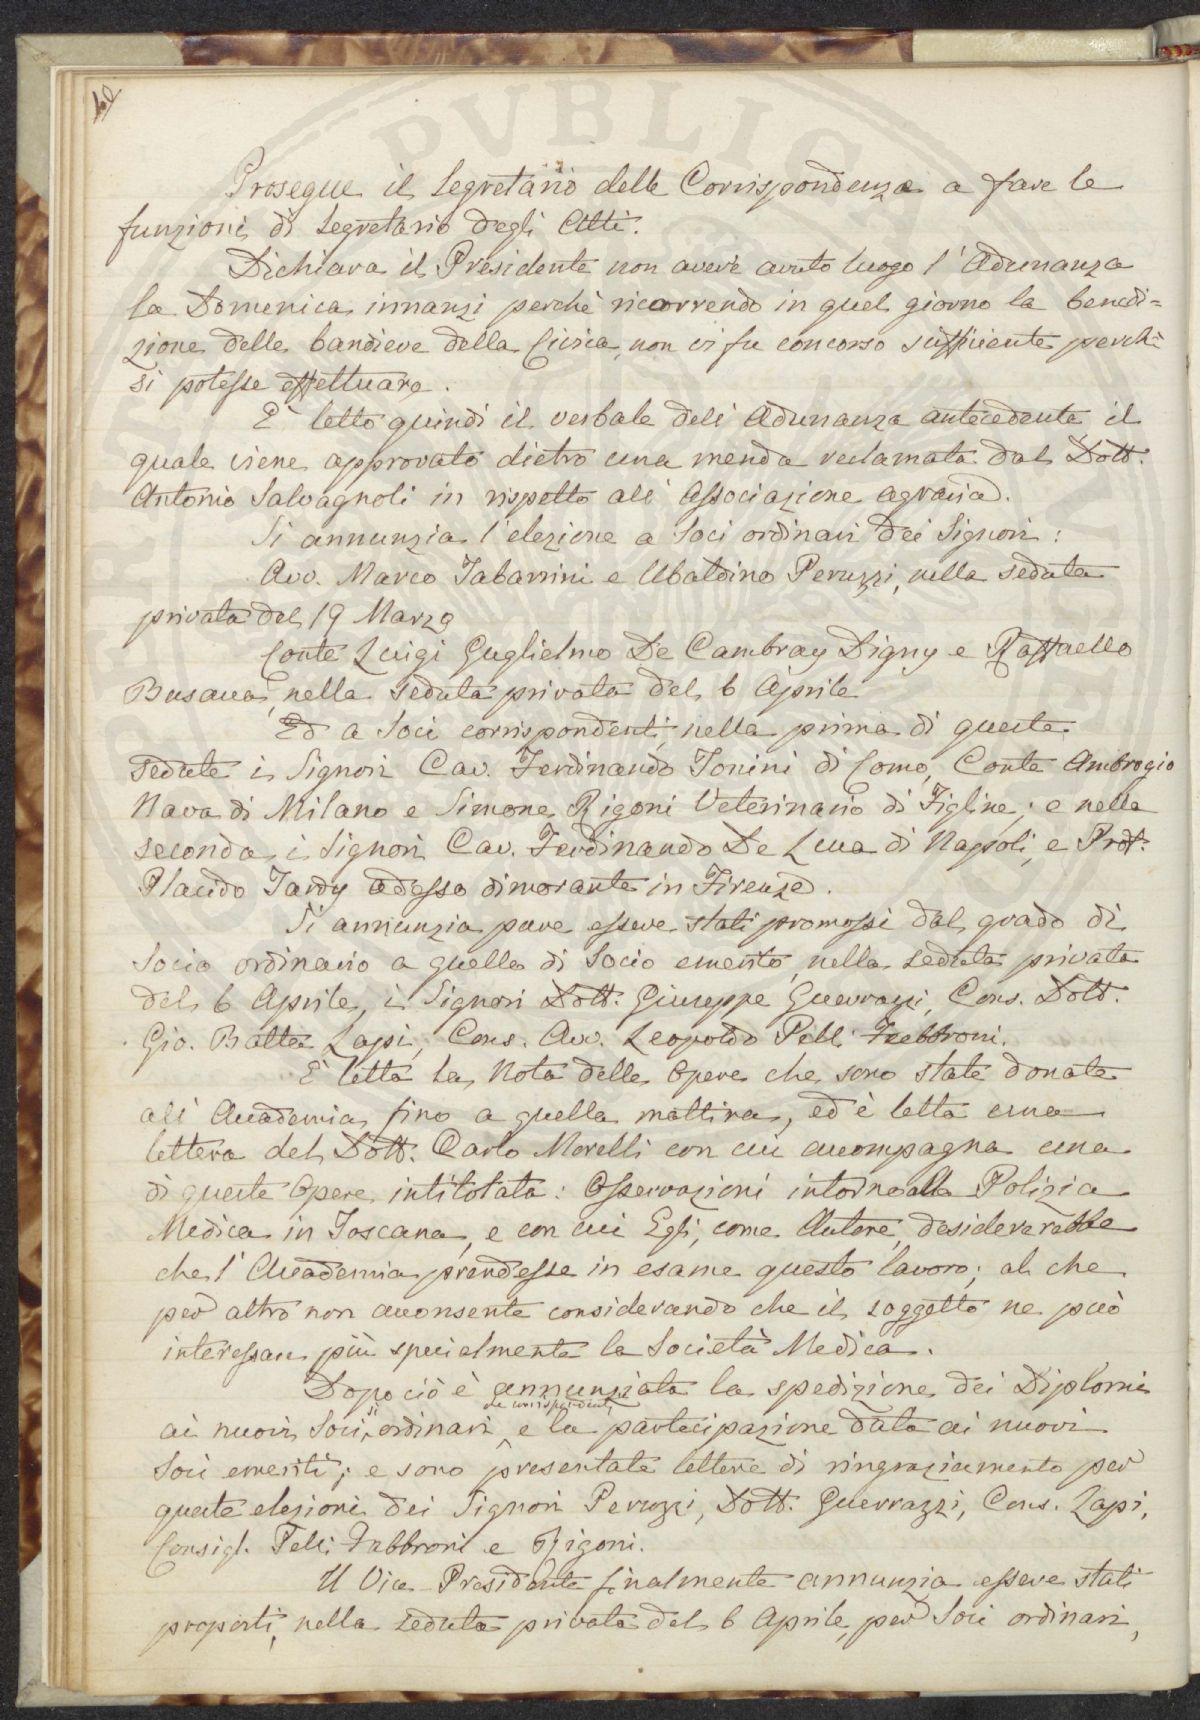 Prosegue il Segretario delle Corrispondenze a fare le
funzioni di Segretario degli Atti.
Dichiara il Presidente non avere avuto luogo l'Adunanza
la Domenica innanzi perchè ricorrendo in quel giorno la benedi=
zione delle bandiere della Civica, non vi fu concorso sufficiente perchè
si potesse effettuare.
È letto quindi il verbale dell'Adunanza antecedente il
quale viene approvato dietro una menda reclamata dal Dott.
Antonio Salvagnoli in rispetto all'Associazione agraria.
Si annunzia l'elezione a Soci ordinari dei Signori:
Avv. Marco Tabarrini e Ubaldino Peruzzi, nella seduta
privata del 19 Marzo
Conte Luigi Guglielmo De Cambray Digny e Raffaello
Busacca, nella seduta privata del 6 Aprile
Ed a Soci corrispondenti, nella prima di queste
sedute i Signori Cav. Ferdinando Tonini di Como, Conte Ambrogio
Nava di Milano e Simone Rigoni Veterinario di Figline; e nella
seconda, i Signori Cav. Ferdinando De Luca di Napoli, e Prof.
Placido Tardy adesso dimorante in Firenze.
Si annunzia pure essere stati promossi dal grado di
Socio ordinario a quello di Socio emerito, nella seduta privata
del 6 Aprile, i Signori Dott. Giuseppe Guerrazzi, Cons. Dott.
Gio. Batta Lapi, Cons. Avv. Leopoldo Pelli Fabbroni.
È letta la Nota delle Opere che sono state donate
all'Accademia fino a quella mattina, ed è letta una
lettera del Dott. Carlo Morelli con cui accompagna una
di queste Opere intitolata: Osservazioni intorno alla Polizia
Medica in Toscana, e con cui Egli, come Autore, desidererebbe
che l'Accademia prendesse in esame questo lavoro; al che
per altro non acconsente considerando che il soggetto ne può
interessare più specialmente la Società Medica.
Dopo ciò è annunziata la spedizione dei Diplomi
ai nuovi Soci sì ordinari che corrispondenti, e la partecipazione data ai nuovi
Soci emeriti; e sono presentate lettere di ringraziamento per
queste elezioni dei Signori Peruzzi, Dott. Guerrazzi, Cons. Lapi,
Consigl. Pelli Fabbroni e Rigoni.
Il Vice-Presidente finalmente annunzia essere stati
proposti, nella seduta privata del 6 Aprile, per Soci ordinari,